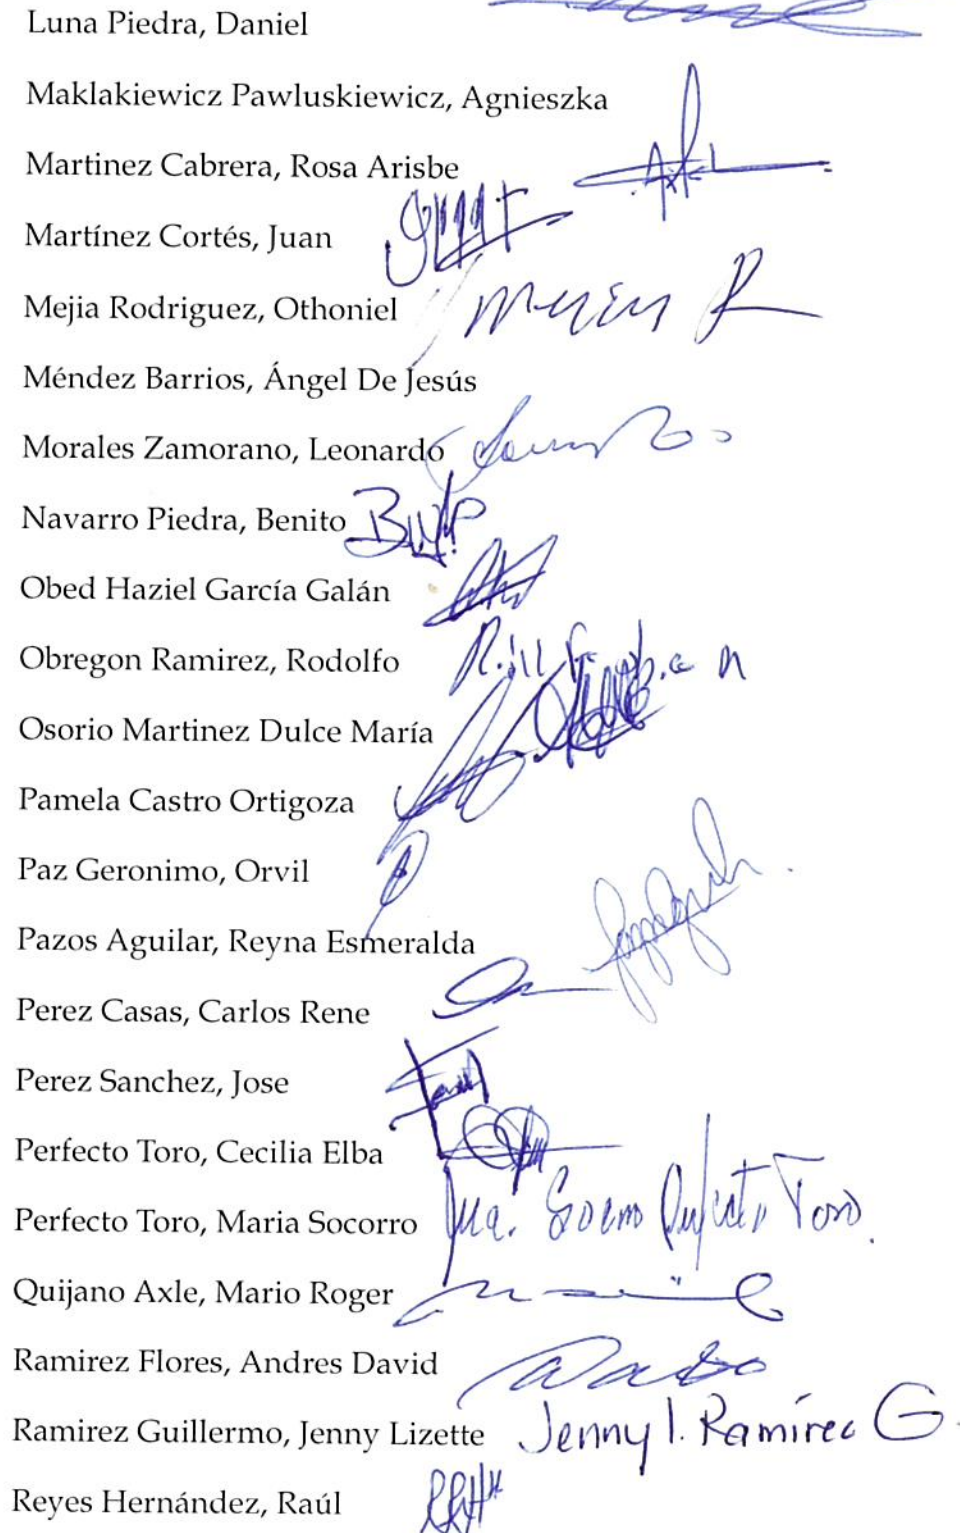 Luna Piedra, Daniel
Maklakiewicz Pawluskiewicz, Agnieszka
Martinez Cabrera, Rosa Arisbe
Martínez Cortés, Juan
Mejia Rodriguez, Othoniel
Méndez Barrios, Ángel De Jesús
Morales Zamorano, Leonardo
Navarro Piedra, Benito
Obed Haziel García Galán
Obregon Ramirez, Rodolfo
Osorio Martinez Dulce María
Pamela Castro Ortigoza
Paz Geronimo, Orvil
Pazos Aguilar, Reyna Esmeralda
Perez Casas, Carlos Rene
Perez Sanchez, Jose
Perfecto Toro, Cecilia Elba
Perfecto Toro, Maria Socorro Ma. Socorro Perfecto Toro.
Quijano Axle, Mario Roger
Ramirez Flores, Andres David
Ramirez Guillermo, Jenny Lizette Jenny l. Ramírez G.
Reyes Hernández, Raúl